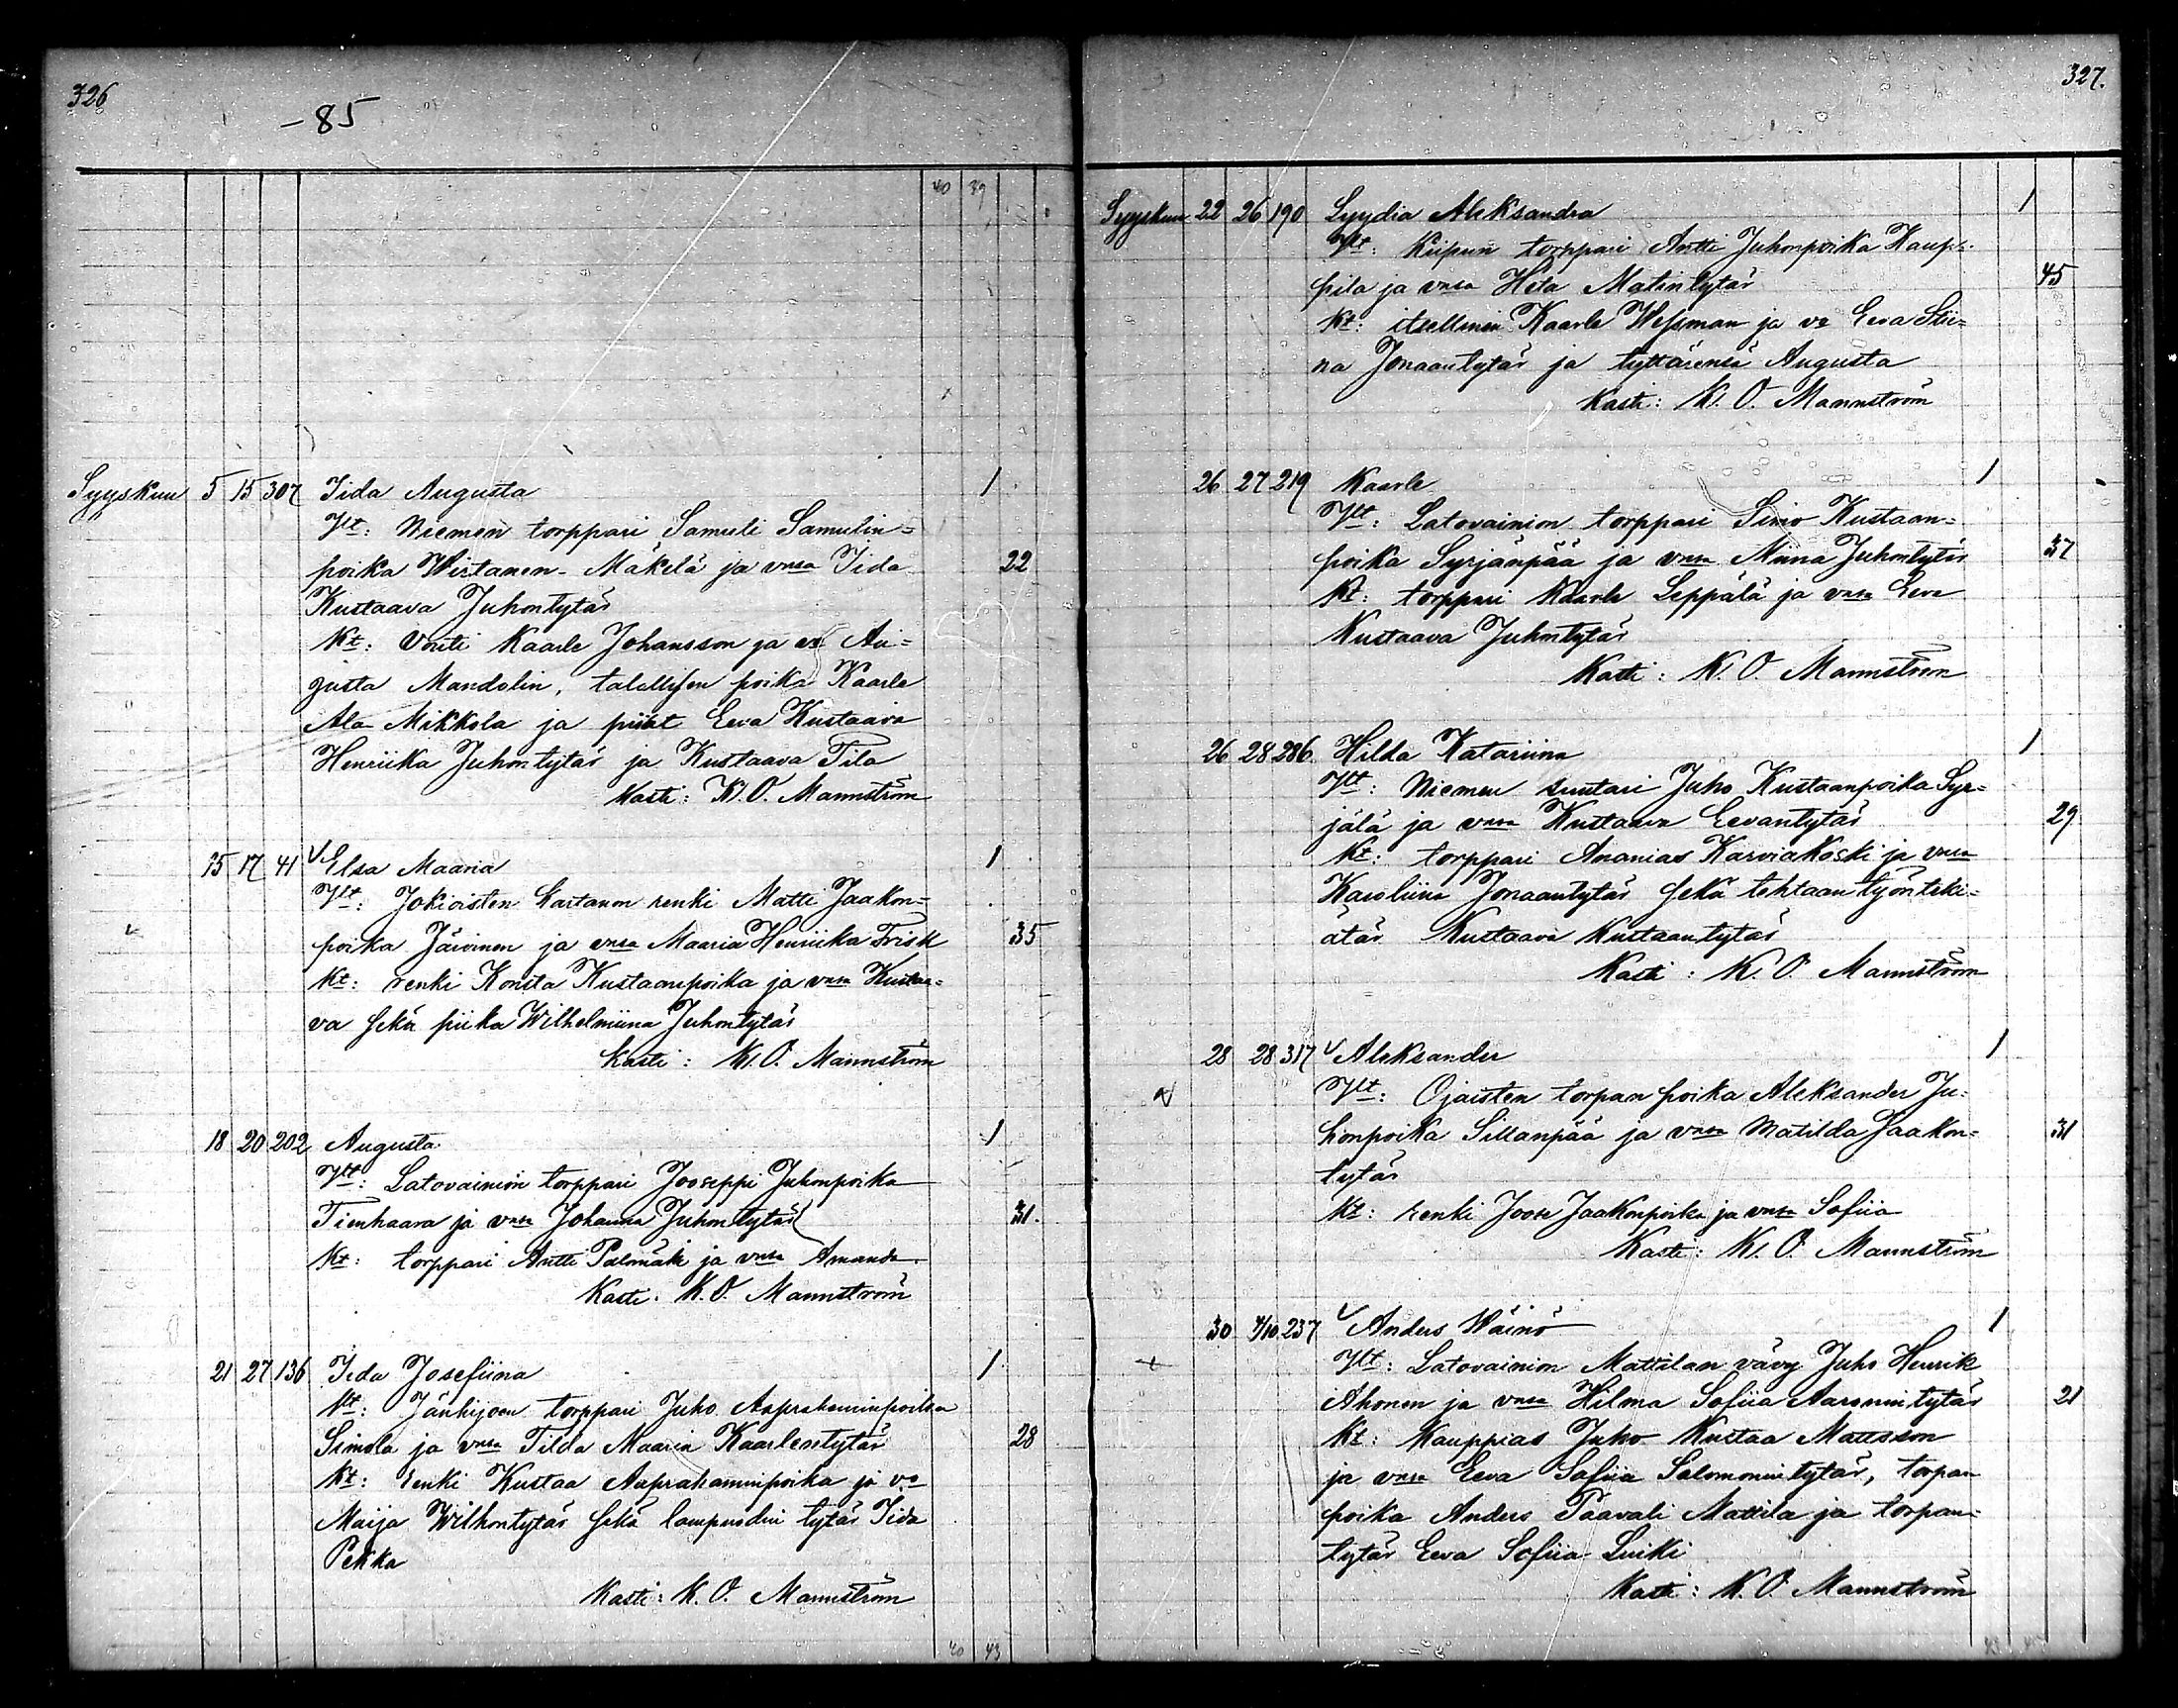 326
-85
40 39
Syyskuu 5 15 307 Iida Augusta 1
Vlt: Niemen torppari Samuli Samulin=
poika Wirtanen-Mäkelä ja vmsa Iida 22
Kustaava Juhontytär
Kt: Vouti Kaarle Johansson ja vo Au=
gusta Mandolin, talollisen poika Kaarle
Ala-Mikkola ja piiat Eeva Kustaava
Henriika Juhontytär ja Kustaava Tila
Kasti: K. O. Mannström
15 17 41 Elsa Maaria 1
Vlt: Jokioisten kartanon renki Matti Jaakon=
poika Järvinen ja vmsa Maaria Henriika Frisk 35
Kt: renki Konsta Kustaanpoika ja vmsa Kustaa=
va sekä piika Wilhelmiina Juhontytär
Kasti: K. O. Mannström
18 20 202 Augusta 1
Vlt: Latovainion torppari Jooseppi Juhonpoika
Tienhaara ja vmsa Johanna Juhontytär 31.
Kt: torppari Antti Palomäki ja vmsa Amanda
Kasti: K. O. Mannström
21 27 136 Iida Josefiina 1
Vlt: Jänhijoen torppari Juho Aaprahaminpoika
Simola ja vmsa Tilda Maaria Kaarlentytär 28
Kt: renki Kustaa Aaprahaminpoika ja vo
Maija Wilhontytär sekä lampuodin tytär Iida
Pekka
Kasti: K. O. Mannström
40 43
327.
Syyskuu 22 26 190 Lyydia Aleksandra 1
Vlt: Kiipun torppari Antti Juhonpoika Kaup=
pila ja vmsa Heta Matintytär 45
Kt: itsellinen Kaarle Wessman ja vo Eeva Stii=
na Jonaantytär ja tyttärensä Augusta
Kasti: K. O. Mannström
26 27 219 Kaarle 1
Vlt: Latovainion torppari Simo Kustaan=
poika Syrjänpää ja vmsa Miina Juhontytär 37
Kt: torppari Kaarle Leppälä ja vmsa Eeva
Kustaava Juhontytär
Kasti: K. O. Mannström
26 28 286 Hilda Katariina 1
Vlt: Niemen suutari Juho Kustaanpoika Syr=
jälä ja vmsa Kustaava Eevantytär 29
Kt: torppari Ananias Karviakoski ja vmsa
Karoliina Jonaantytär sekä tehtaan työnteki=
ätär Kustaava Kustaantytär
Kasti: K. O. Mannström
28 28 317 Aleksander 1
Vlt: Ojaisten torpan poika Aleksander Ju=
honpoika Sillanpää ja vmsa Matilda Jaakon= 31
tytär
Kt: renki Joose Jaakonpoika ja vmsa Sofiia
Kasti: K. O. Mannström
30 4/10 237 Anders Wäinö 1
Vlt: Latovainion Mattilan vävy Juho Henrik
Ahonen ja vmsa Hilma Sofiia Aaronintytär 21
Kt: Kauppias Juho Kustaa Mattsson
ja vmsa Eeva Sofiia Salomonintytär, torpan
poika Anders Paavali Mattila ja torpan=
tytär Eeva Sofiia Luiki
Kasti: K. O. Mannström